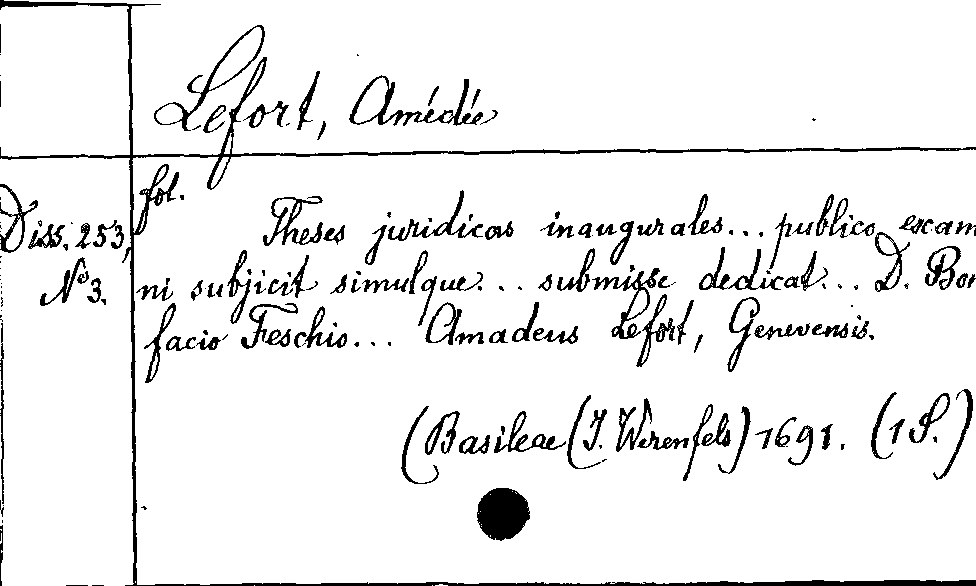 Lefort, Amédée
fol.
Diss. 253, Theses juridicas inaugurales... publico exam
No 3. ni subjicit simulque... submisse dedicat... D. Bon
facio Feschio... Amadeus Lefort, Genevensis.
(Basileae (J. Werenfels) 1691. (1 S.)